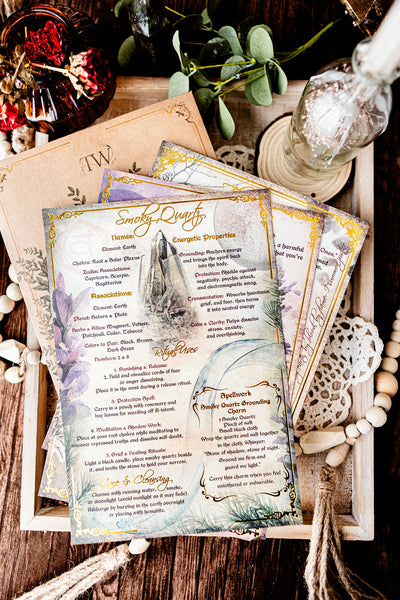 TW
Smoky Quartz
Names:
Element: Earth
Chakra: Root & Solar Plexus
Zodiac Associations:
Capricorn, Scorpio,
Sagittarius
Associations:
Element: Earth
Planet: Saturn & Pluto
Herbs & Allies: Mugwort, Vetiver,
Patchouli, Cedar, Tobacco
Colors to Pair: Black, Brown,
Dark Green
Numbers: 2 & 8
Energetic Properties
Grounding: Anchors energy
and brings the spirit back
into the body.
Protection: Shields against
negativity, psychic attack,
and electromagnetic smog.
Transmutation: Absorbs harmful
grief, and fear, then turns
it into neutral energy
Calm & Clarity: Helps dissolve
stress, anxiety,
and overthinking.
Ritual Uses
1. Banishing & Release:
Hold and visualize cords of fear
or anger dissolving.
Place it in the west during a release ritual.
Protection Spell:
Carry in a pouch with rosemary and
bay leaves for warding off ill-intent.
Meditation & Shadow Work:
Place at your root chakra while meditating to
uncover repressed truths and dissolve self-doubt.
Grief & Healing Rituals:
Light a black candle, place smoky quartz beside
it, and invite the stone to hold your sorrow.
Care & Cleansing
Cleanse with running water, smoke,
or moonlight (avoid sunlight as it may fade).
Recharge by burying in the earth overnight
or placing with hematite.
Spellwork
Smoky Quartz Grounding
Charm
1 Smoky Quartz
Pinch of salt
Small black cloth
Wrap the quartz and salt together
in the cloth. Whisper:
"Stone of shadow, stone of night,
Ground me firm and
guard my light."
Carry this charm when you feel
untethered or vulnerable.
a harmful
that you're